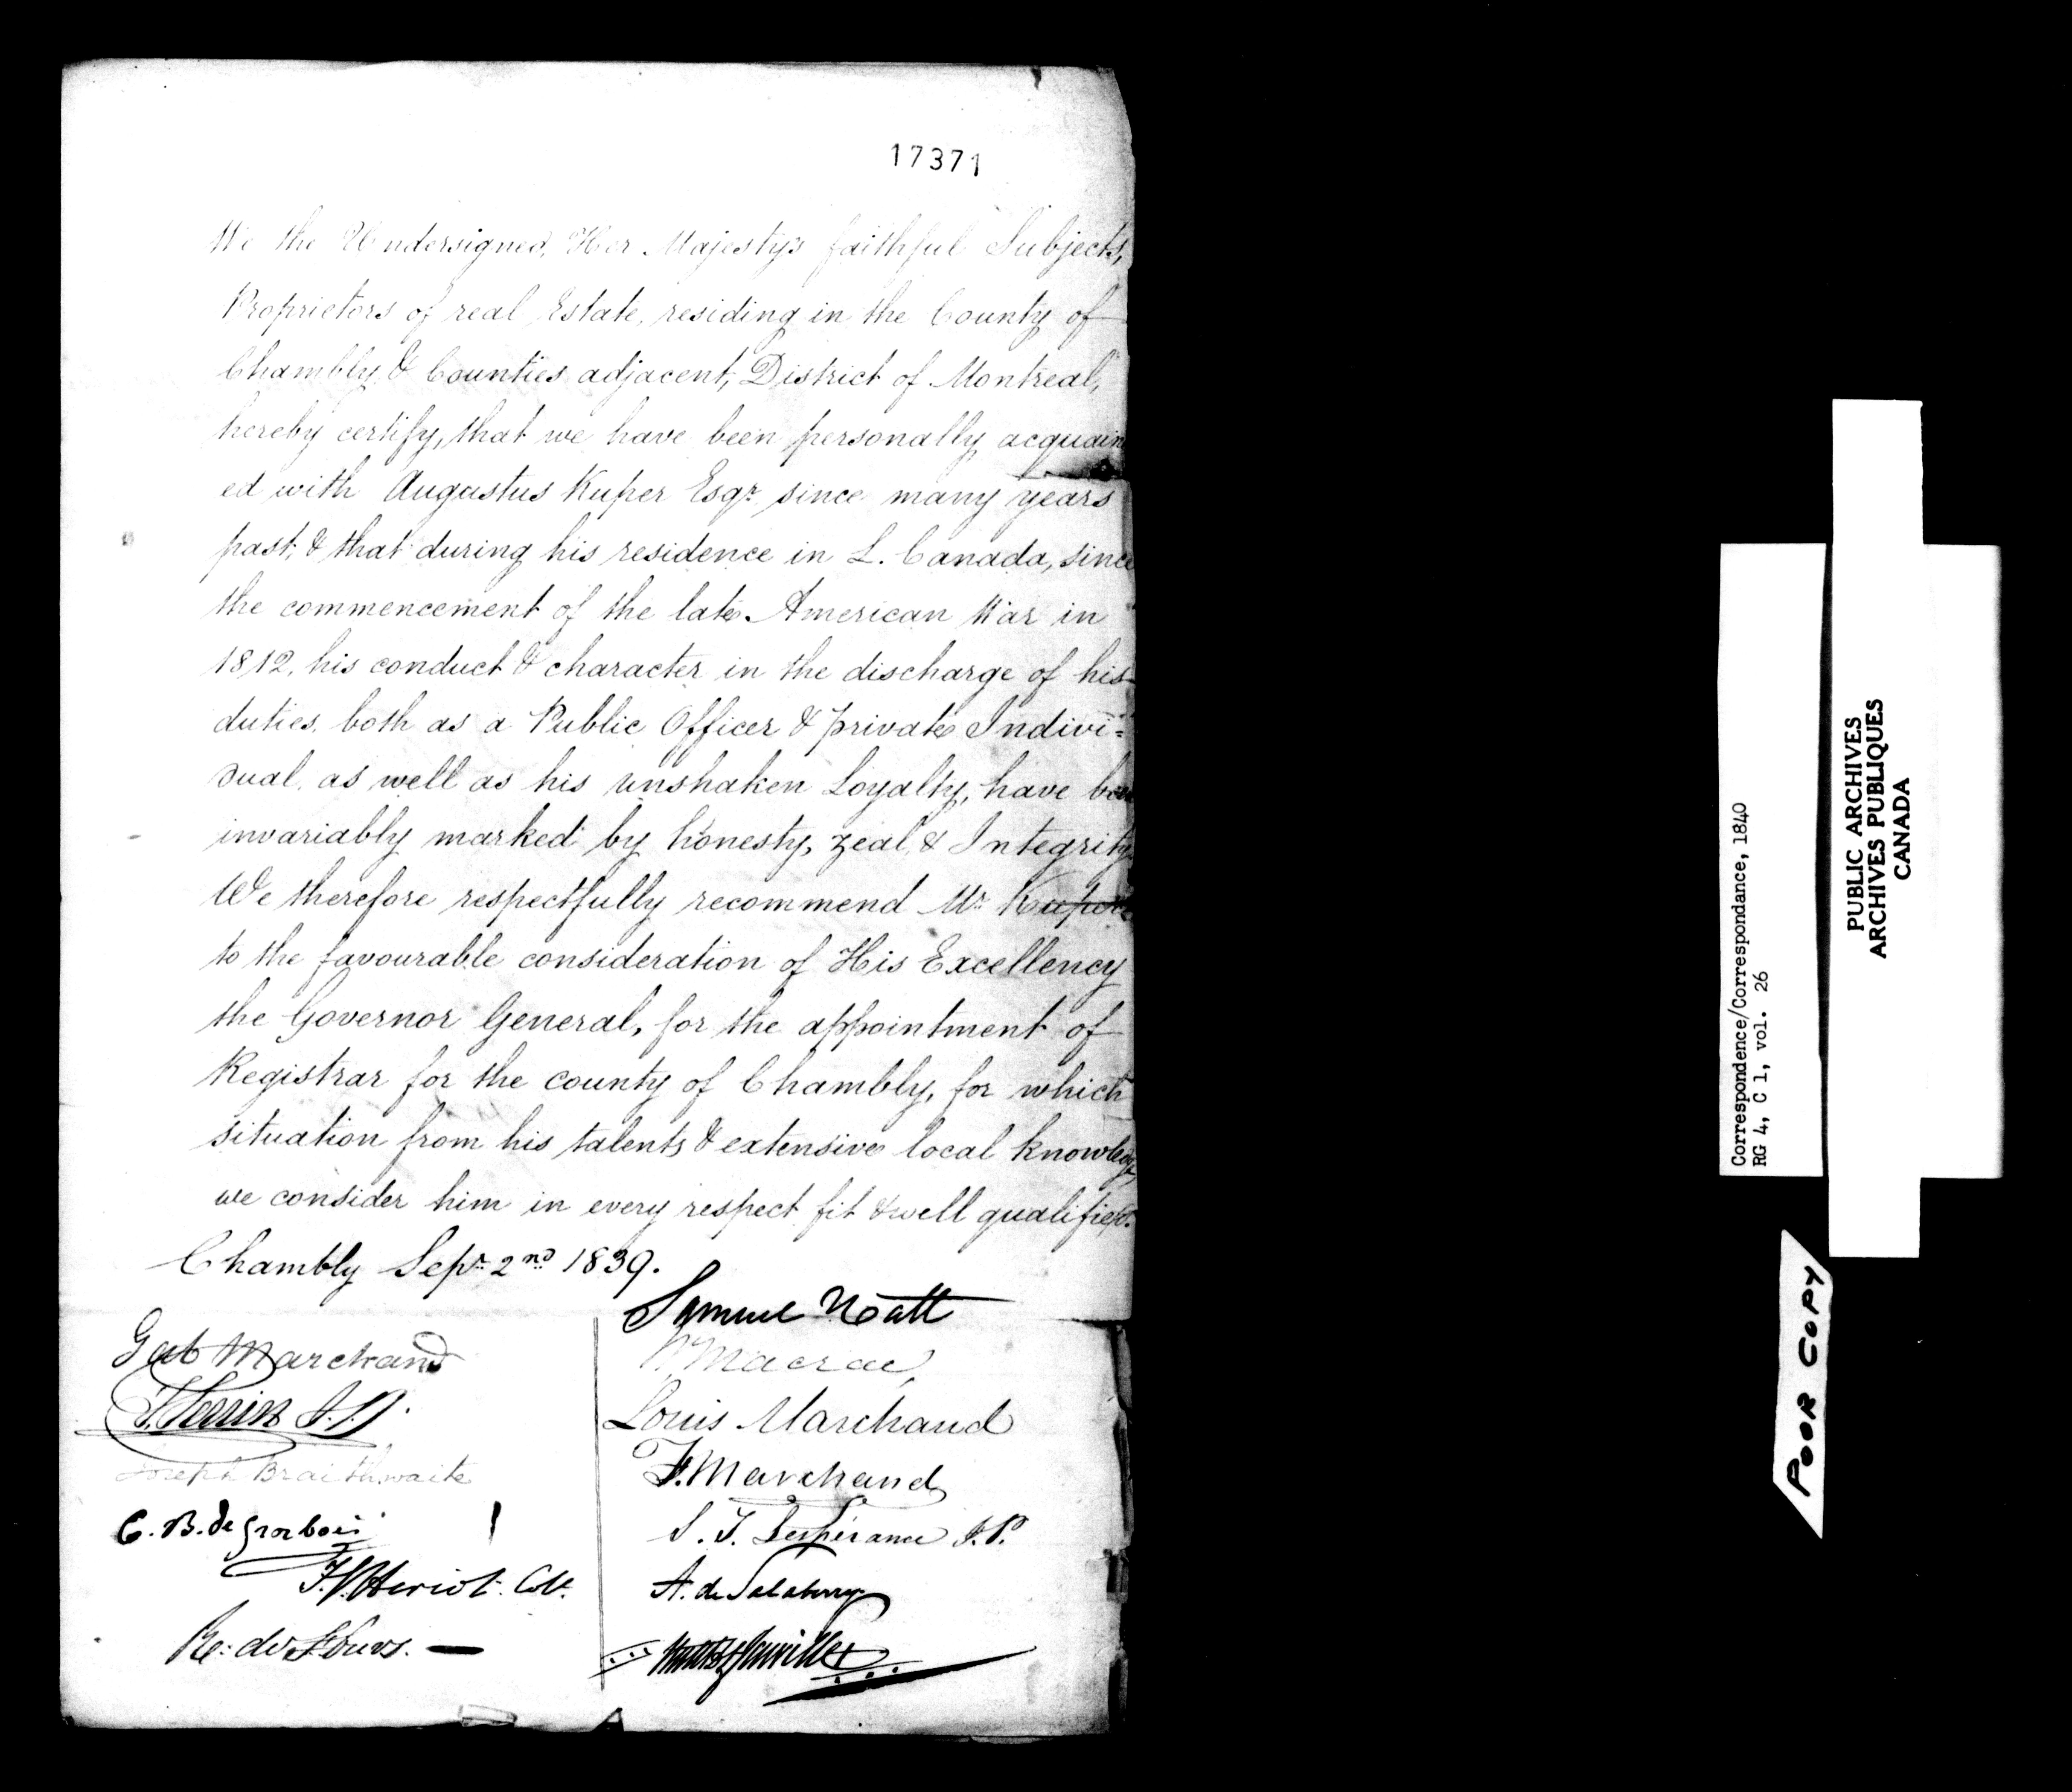 17371
We the Undersigned, Her Majesty's faithful Subjects,
Proprietors of real Estate, residing in the County of
Chambly & Counties adjacent, District of Montreal,
hereby certify, that we have been personally acquain
ed with Augustus Kuper Esqr. since many years
past, & that during his residence in L. Canada, since
the commencement of the late American War in
1812, his conduct & character in the discharge of his
duties, both as a Public Officer & private Indivi=
dual, as well as his unshaken Loyalty, have been
invariably marked by honesty, zeal, & Integrity.
We therefore respectfully recommend Mr. Kuper
to the favourable consideration of His Excellency
the Governor General, for the appointment of
Registrar for the county of Chambly, for which
situation from his talents & extensive local knowledge,
we consider him in every respect fit & well qualified.
Chambly Sepr. 2nd 1839.
Samuel Hatt
Gab Marchand
Macrae
Louis Marchand
Joseph Braithwaite
F. Marchand
C. B. de Grosbois
S. T. Lespérance J.P.
F. Heriot. Col.
A. de Salaberry
Correspondence/Correspondance, 1840
RG 4, C 1, vol. 26
PUBLIC ARCHIVES
ARCHIVES PUBLIQUES
CANADA
POOR COPY